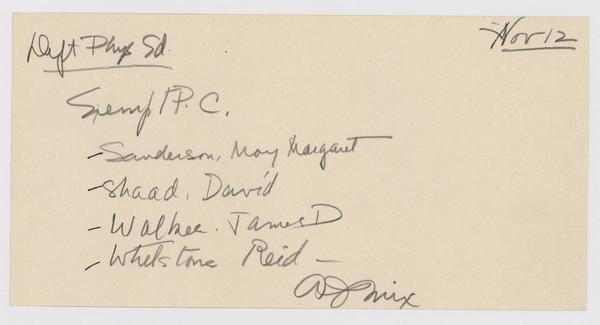 Dept Phys Ed.
Nov 12
Exempt P. C.
- Sanderson, Mary Margaret
- Shaad, David
- Walker, James D
- Whetstone Reid -
Nix